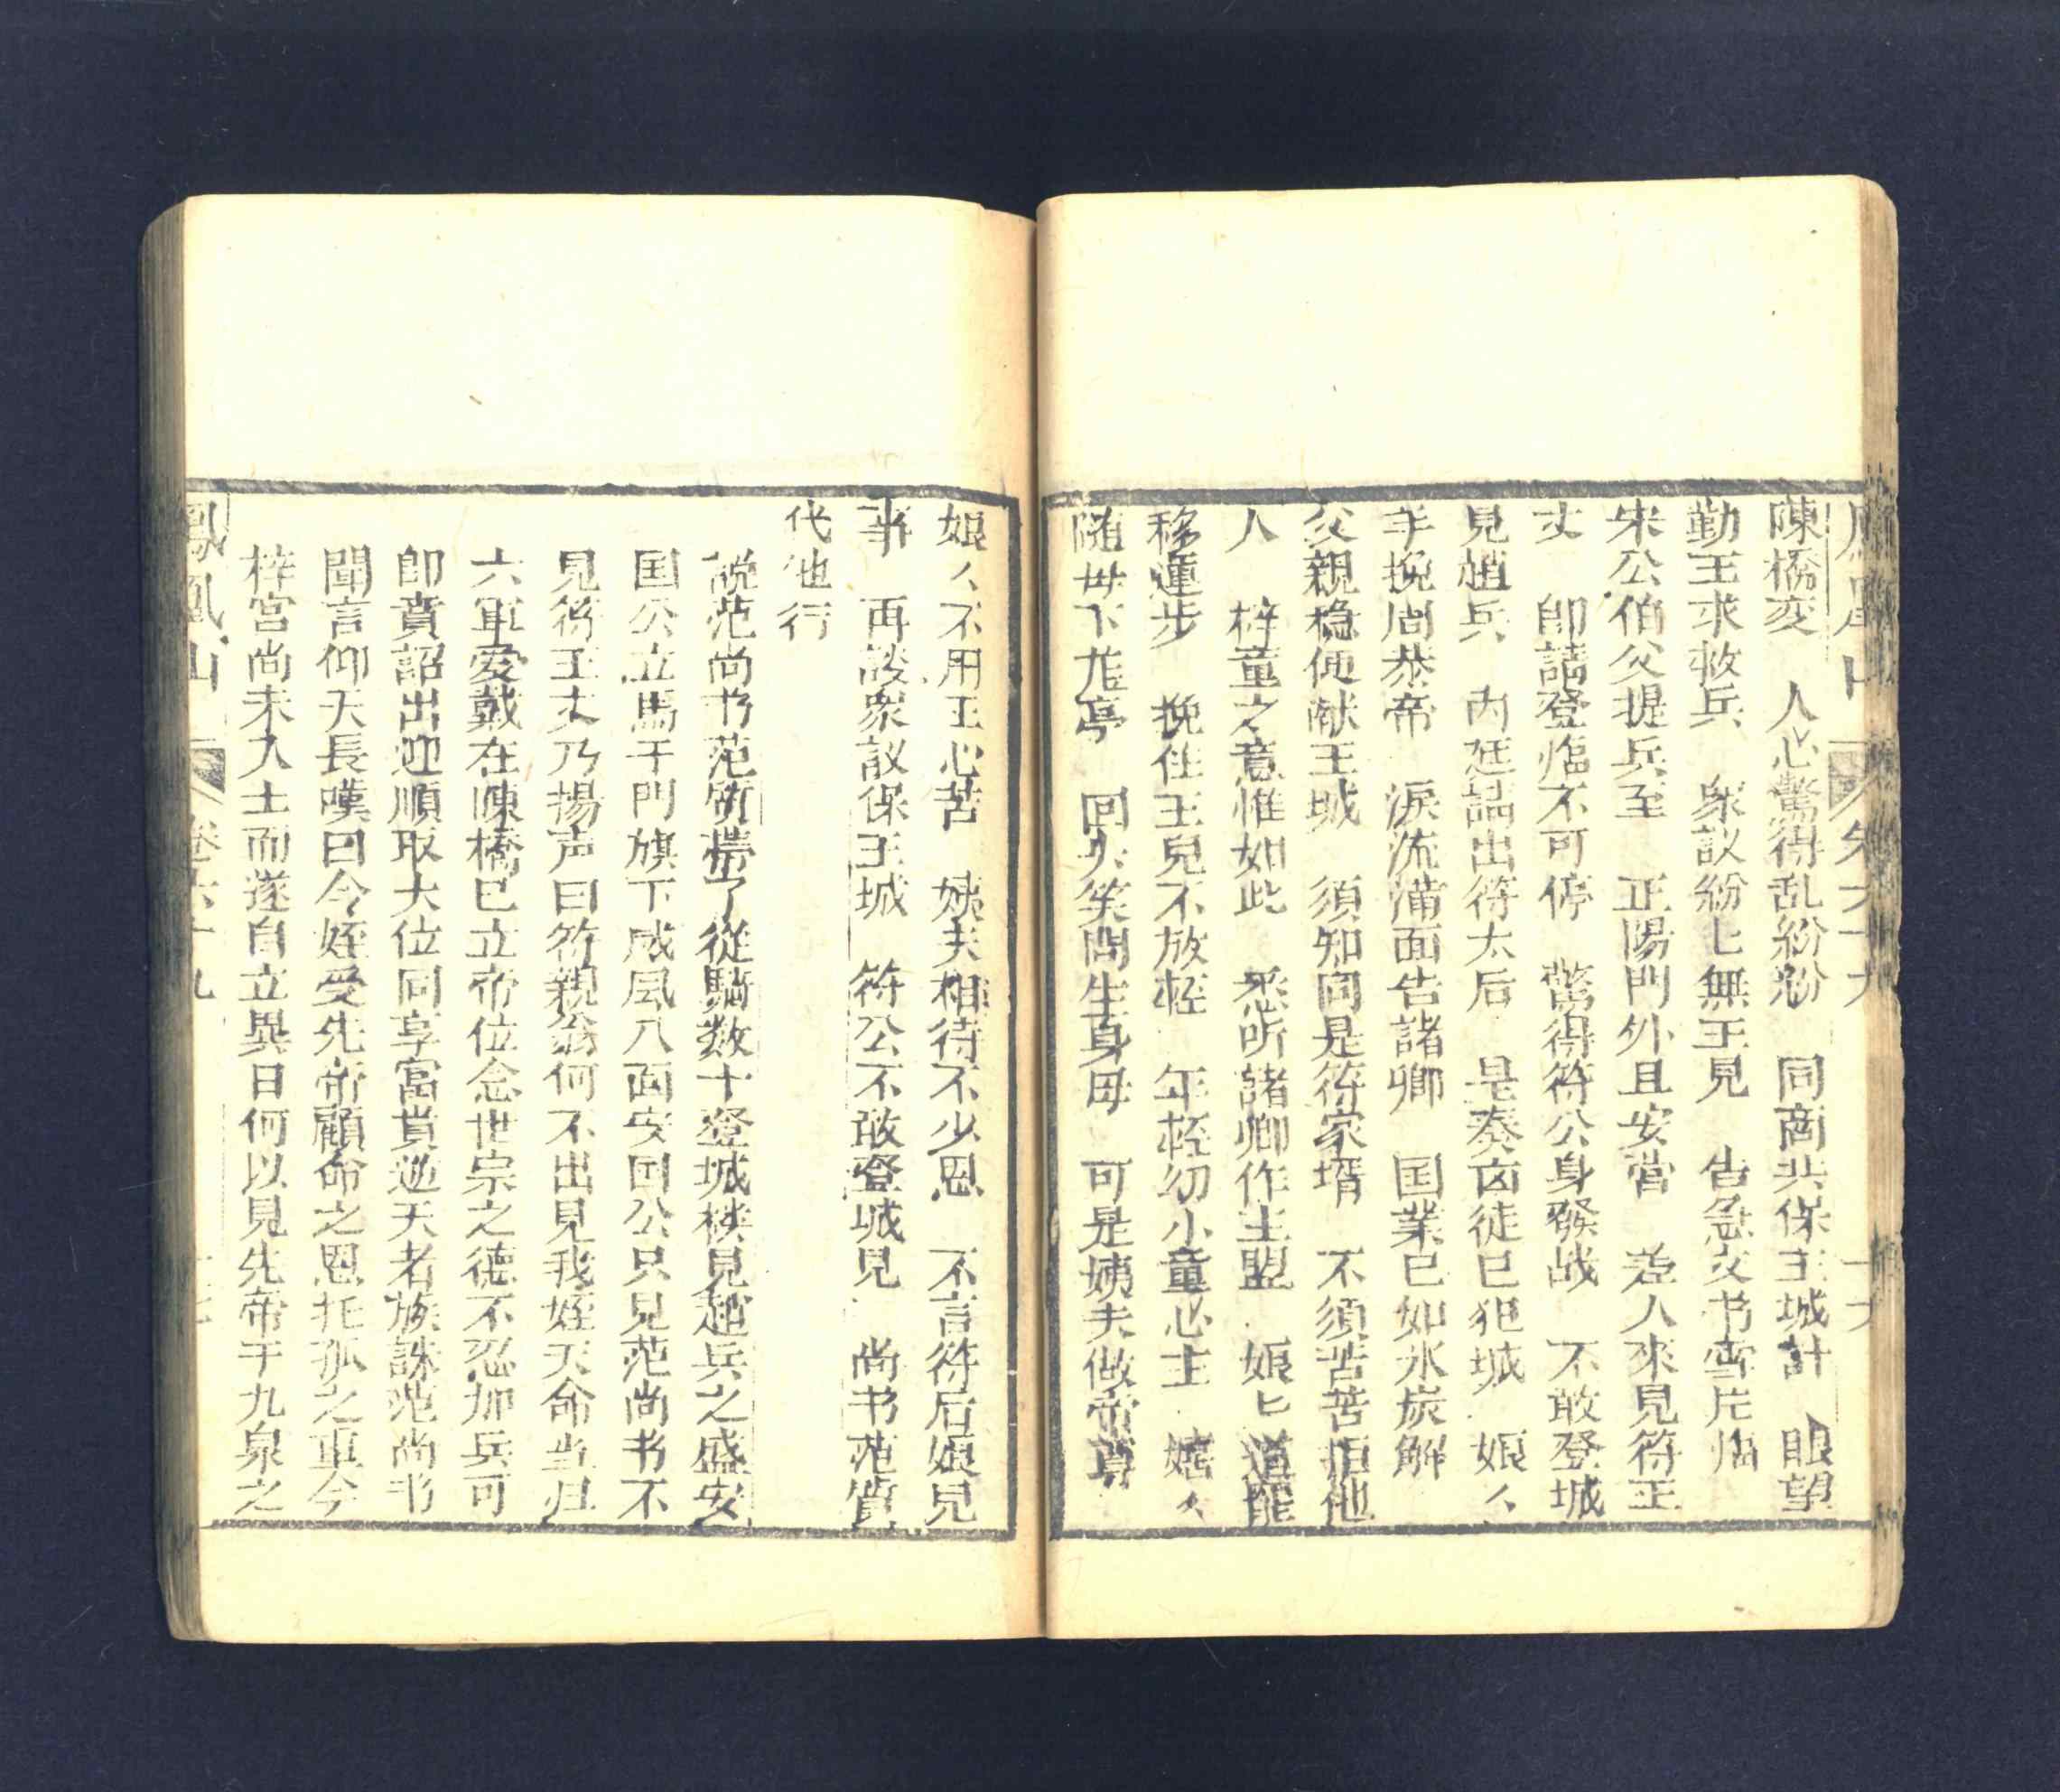 陳橋变　人心驚得乱紛紛　同商共保王城計　眼望
勤王求救兵　衆議紛匕無王見　告急文书雪片临
宋公伯父提兵至　正陽門外且安营　差人來見符王
丈　即請登临不可停　驚得符公身發战　不敢登城
見趙兵　內廷請出符太后　是奏囟徒巳犯城　娘〻
手挽周恭帝　淚流满面告諸卿　国業已如氷炭解
父親稳便献王城　須知同是符家壻　不須苦苦拒他
人　梓童之意惟如此　悉听諸卿作主盟　娘匕道罷
移蓮步　挽住王兒不放輊　年輊幼小童心主　嬉〻
随母下龙亭　回头笑問生身母　可是姨夫做帝尊
娘〻不用王心苦　姨夫相待不少恩　不言符后娘見
事　再談衆議保王城　符公不敢登城見　尚书范質
代他行
說范尚书范質帶了從騎数十登城楼見趙兵之盛安
国公立馬于門旗下威風八面安国公只見范尚书不
見符王丈乃揚声曰符親翁何不出見我姪天命当归
六軍爱戴在陳橋已立帝位念世宗之德不忍加兵可
即賫詔出迎順取大位同享富貴逆天者族誅范尚书
聞言仰天長嘆曰今姪受先帝顧命之恩托孤之重今
梓宮尚未入土而遂自立異日何以見先帝于九泉之
鳳凰山　卷六十九